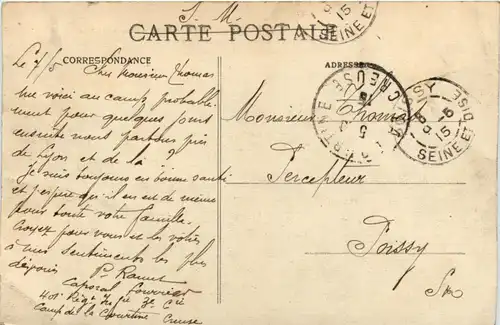 S. M.
CARTE POSTALE
CORRESPONDANCE
ADRESSE
Le 7/5
Cher Monsieur Thomas
me voici au camp probable-
ment pour quelques jours
ensuite nous partons près
de Lyon et de là ?
Je suis toujours en bonne santé
et j'espère qu'il en est de même
pour toute votre famille.
Croyez pour vous et les vôtres
à mes sentiments les plus
dévoués
Caporal fourrier
408e Regt Inf ie 3e Cie
Camp de la Courtine Creuse
Monsieur Thomas
Percepteur
Poissy
S&O
CREUSE
POISSY
15
SEINE ET OISE
15
SEINE ET